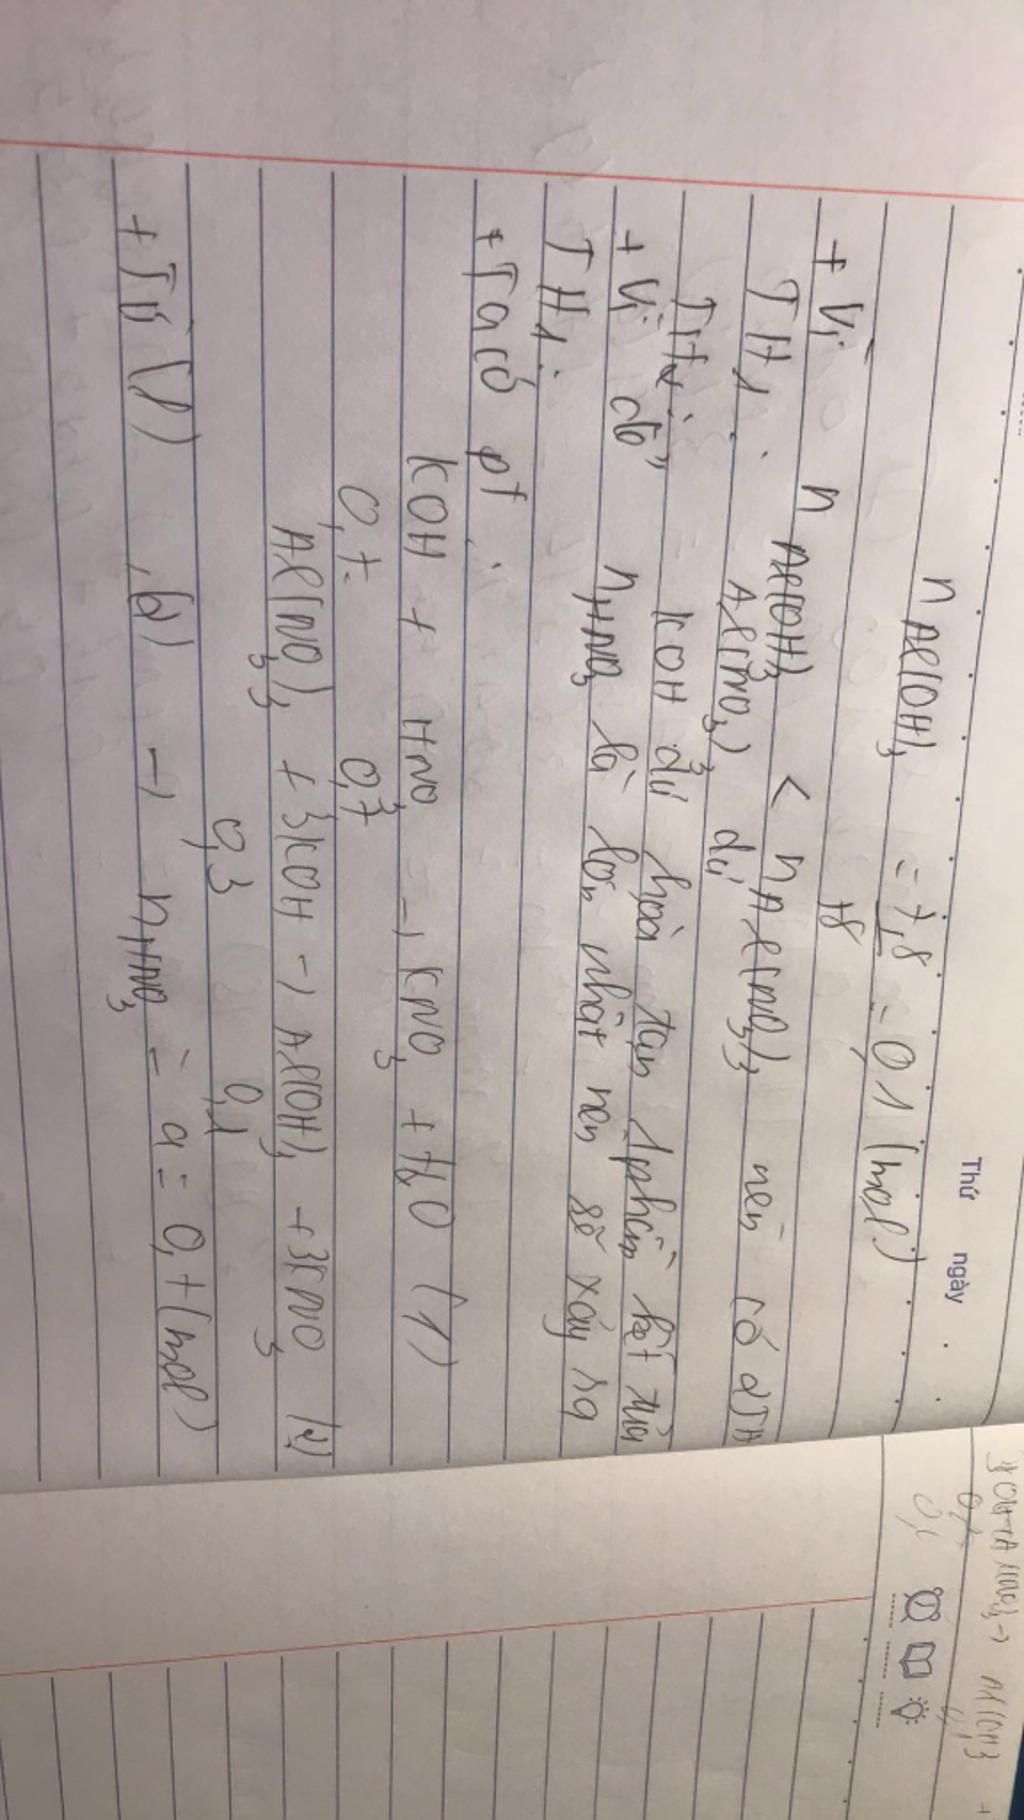 Thứ
ngày
n Al(OH)3 = 7,8 = 0,1 (mol)
78
+ Vì n Al(OH)3 < n Al(NO3)3 nên có 2TH
TH1: Al(NO3)3 dư
TH2: KOH dư hòa tan 1 phần kết tủa
+ Vì đề" nHNO3 là lớn nhất nên sẽ xảy ra
TH1:
+ Ta có pt:
KOH + HNO3 → KNO3 + H2O (1)
0,7 0,7
Al(NO3)3 + 3KOH → Al(OH)3 + 3KNO3 (2)
0,3 0,1
+ Từ (1), (2) → nHNO3 = a = 0,7 (mol)
3KOH + Al(NO3)3 → Al(OH)3 +
0,1